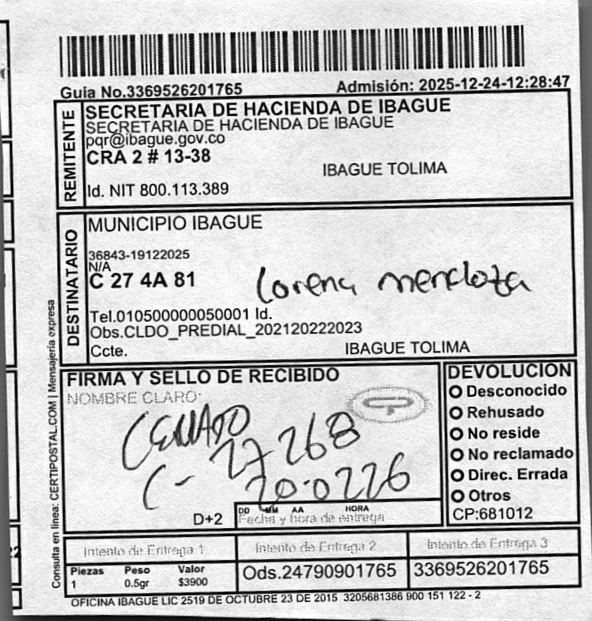 Guia No.3369526201765 Admisión: 2025-12-24-12:28:47
REMITENTE
SECRETARIA DE HACIENDA DE IBAGUE
SECRETARIA DE HACIENDA DE IBAGUE
pqr@ibague.gov.co
CRA 2 # 13-38
IBAGUE TOLIMA
Id. NIT 800.113.389
DESTINATARIO
MUNICIPIO IBAGUE
36843-19122025
N/A
C 27 4A 81
Lorena Mendoza
Tel.010500000050001 Id.
Obs.CLDO_PREDIAL_202120222023
Ccte. IBAGUE TOLIMA
Consulta en línea: CERTIPOSTAL.COM | Mensajería expresa
FIRMA Y SELLO DE RECIBIDO
NOMBRE CLARO:
C- 27268
20-0226
D+2
DD MM AA HORA
Fecha y hora de entrega
DEVOLUCION
Desconocido
Rehusado
No reside
No reclamado
Direc. Errada
Otros
CP:681012
Intento de Entrega 1 Intento de Entrega 2 Intento de Entrega 3
Piezas Peso Valor
1 0.5gr $3900
Ods.24790901765 3369526201765
OFICINA IBAGUE LIC 2519 DE OCTUBRE 23 DE 2015 3205681386 900 151 122 - 2